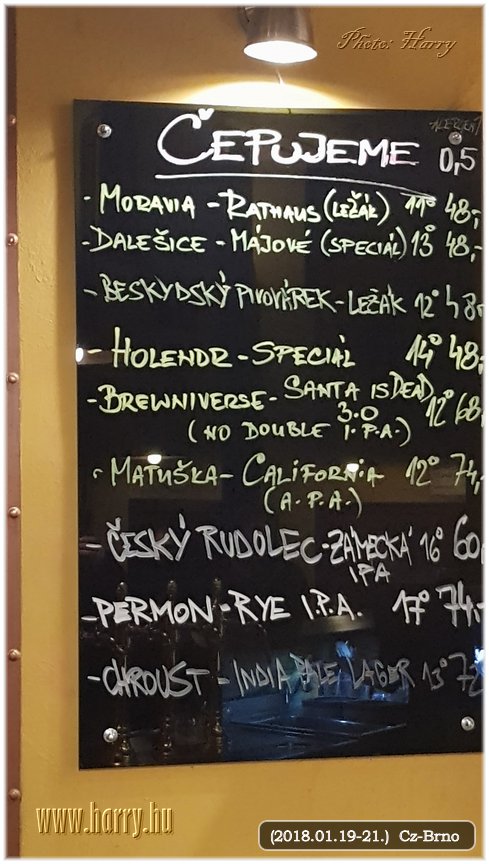 Photo: Harry
ČEPUJEME 0,5
- MORAVIA - RATHAUS (LEŽÁK) 11° 48,-
- DALEŠICE - MÁJOVÉ (SPECIÁL) 13° 48,-
- BESKYDSKÝ PIVOVÁREK - LEŽÁK 12° 48
- HOLENDR - SPECIÁL 14° 48,
- BREWNIVERSE - SANTA IS DEAD 12° 68,
3.0
(NO DOUBLE I.P.A.)
- MATUŠKA - CALIFORNIA 12° 74,-
(A.P.A.)
- ČESKÝ RUDOLEC - ZÁMECKÁ 16° 60,
IPA
- PERMON - RYE I.P.A. 17° 74,-
- CHROUST - INDIA PALE LAGER 13° 72
www.harry.hu
(2018.01.19-21.) Cz-Brno